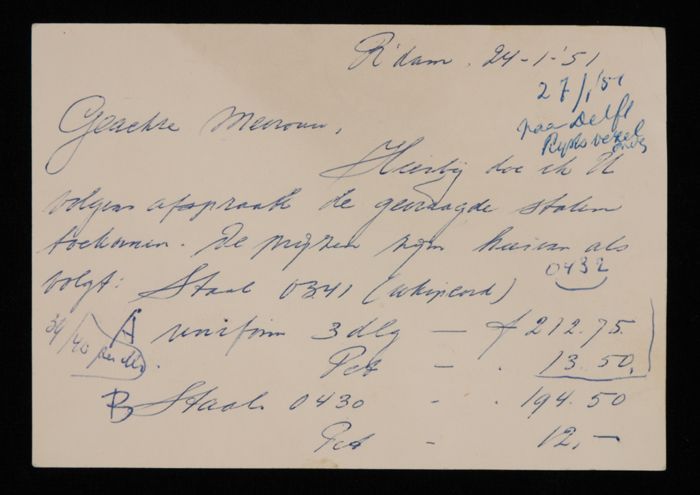 R'dam, 24-1-'51
27/1/51
naar Delft
Geachte Mevrouw,
Hierbij doe ik U
volgens afspraak de gevraagde stalen
toekomen. De prijzen zijn hiervan als
0432
volgt: Staal 0341 (whipcord)
A uniform 3dlg — f 212.75
34/40 per
Pet — . 13.50.
B Staal 0430 - . 194.50
Pet - 12,-